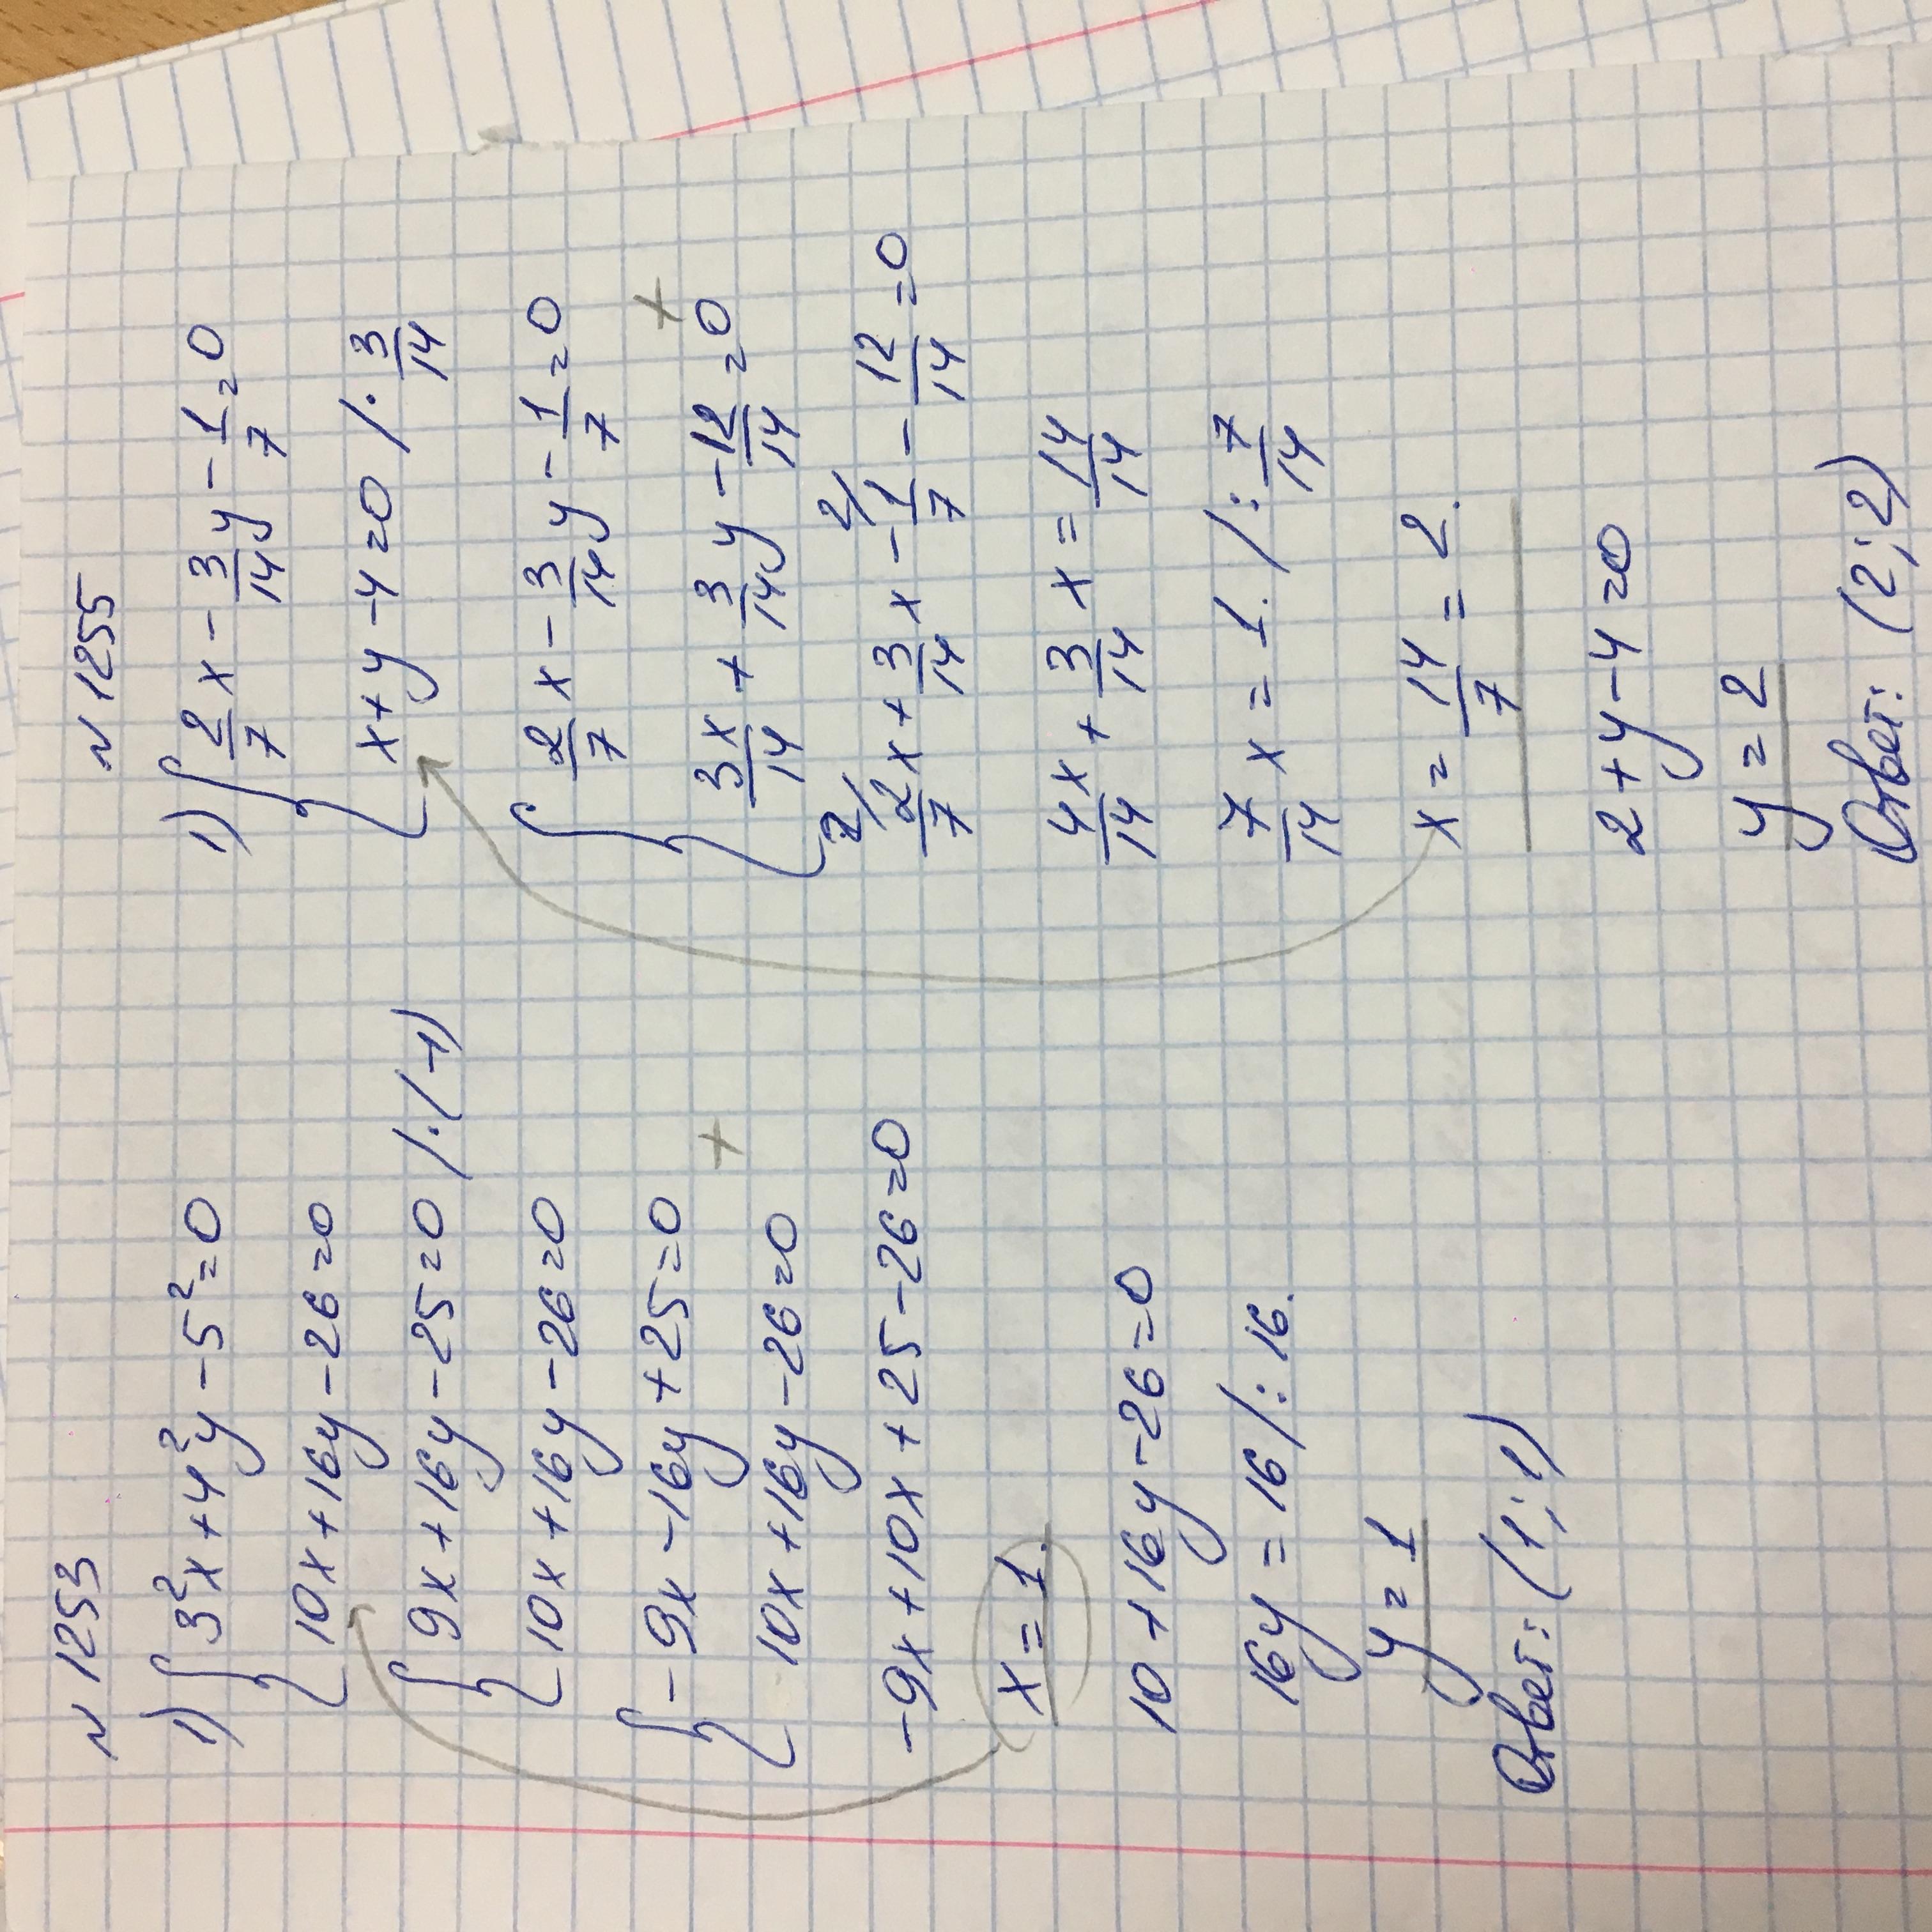 N 1253
1) { 3²x + 4²y - 5² = 0
10x + 16y - 26 = 0
{ 9x + 16y - 25 = 0 /·(-1)
10x + 16y - 26 = 0
{ -9x - 16y + 25 = 0
+
10x + 16y - 26 = 0
-9x + 10x + 25 - 26 = 0
x = 1.
10 + 16y - 26 = 0
16y = 16 /:16.
y = 1
Ответ: (1; 1)
N 1255
1) { 2/7 x - 3/14 y - 1/7 = 0
x + y - 4 = 0 /· 3/14
{ 2/7 x - 3/14 y - 1/7 = 0
+
3x/14 + 3/14 y - 12/14 = 0
2/ 2/7 x + 3/14 x - 2/ 1/7 - 12/14 = 0
4x/14 + 3/14 x = 14/14
7/14 x = 1. /: 7/14
x = 14/7 = 2.
2 + y - 4 = 0
y = 2
Ответ: (2; 2)